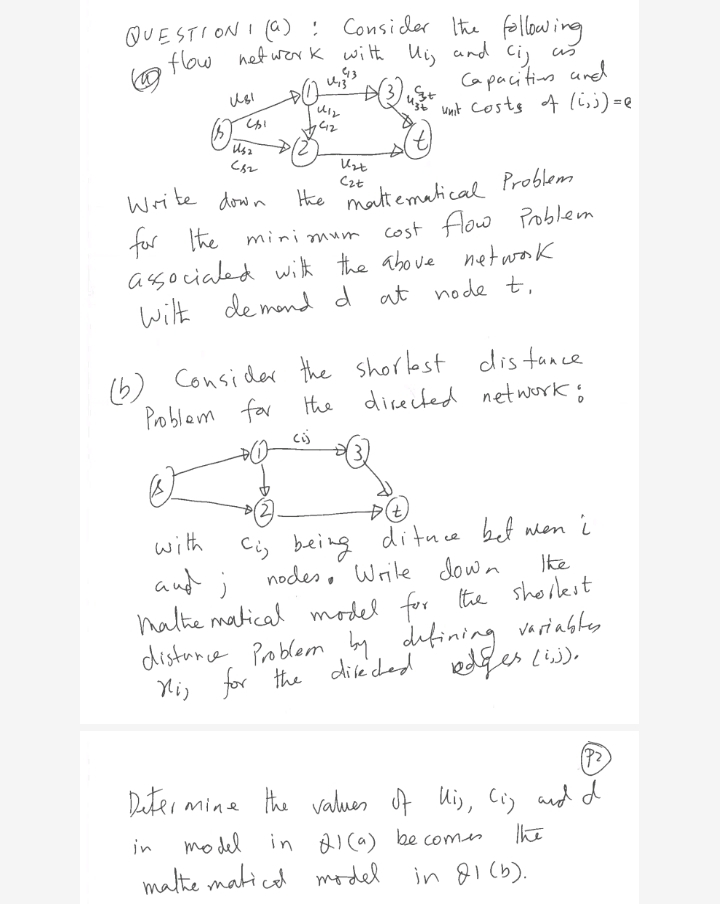 QUESTION 1 (a) : Consider the following
(a) flow network with Uij and Cij as
Capacities and
unit costs of (i,j)=e
Us1
Cs1
U13 C13
1
3
U3t C3t
U12
C12
s
Us2
Cs2
2
t
U2t
C2t
Write down the mathematical Problem
for the minimum cost flow Problem
associated with the above network
with demand d at node t.
(b) Consider the shortest distance
Problem for the directed network:
Cij
1
3
s
2
t
with Cij being ditnce between i
and j nodes. Write down the
mathematical model for the shortest
distance Problem by defining variables
xij for the directed edges (i,j).
P2
Determine the values of Uij, Cij and d
in model in Q1(a) becomes the
mathematical model in Q1(b).